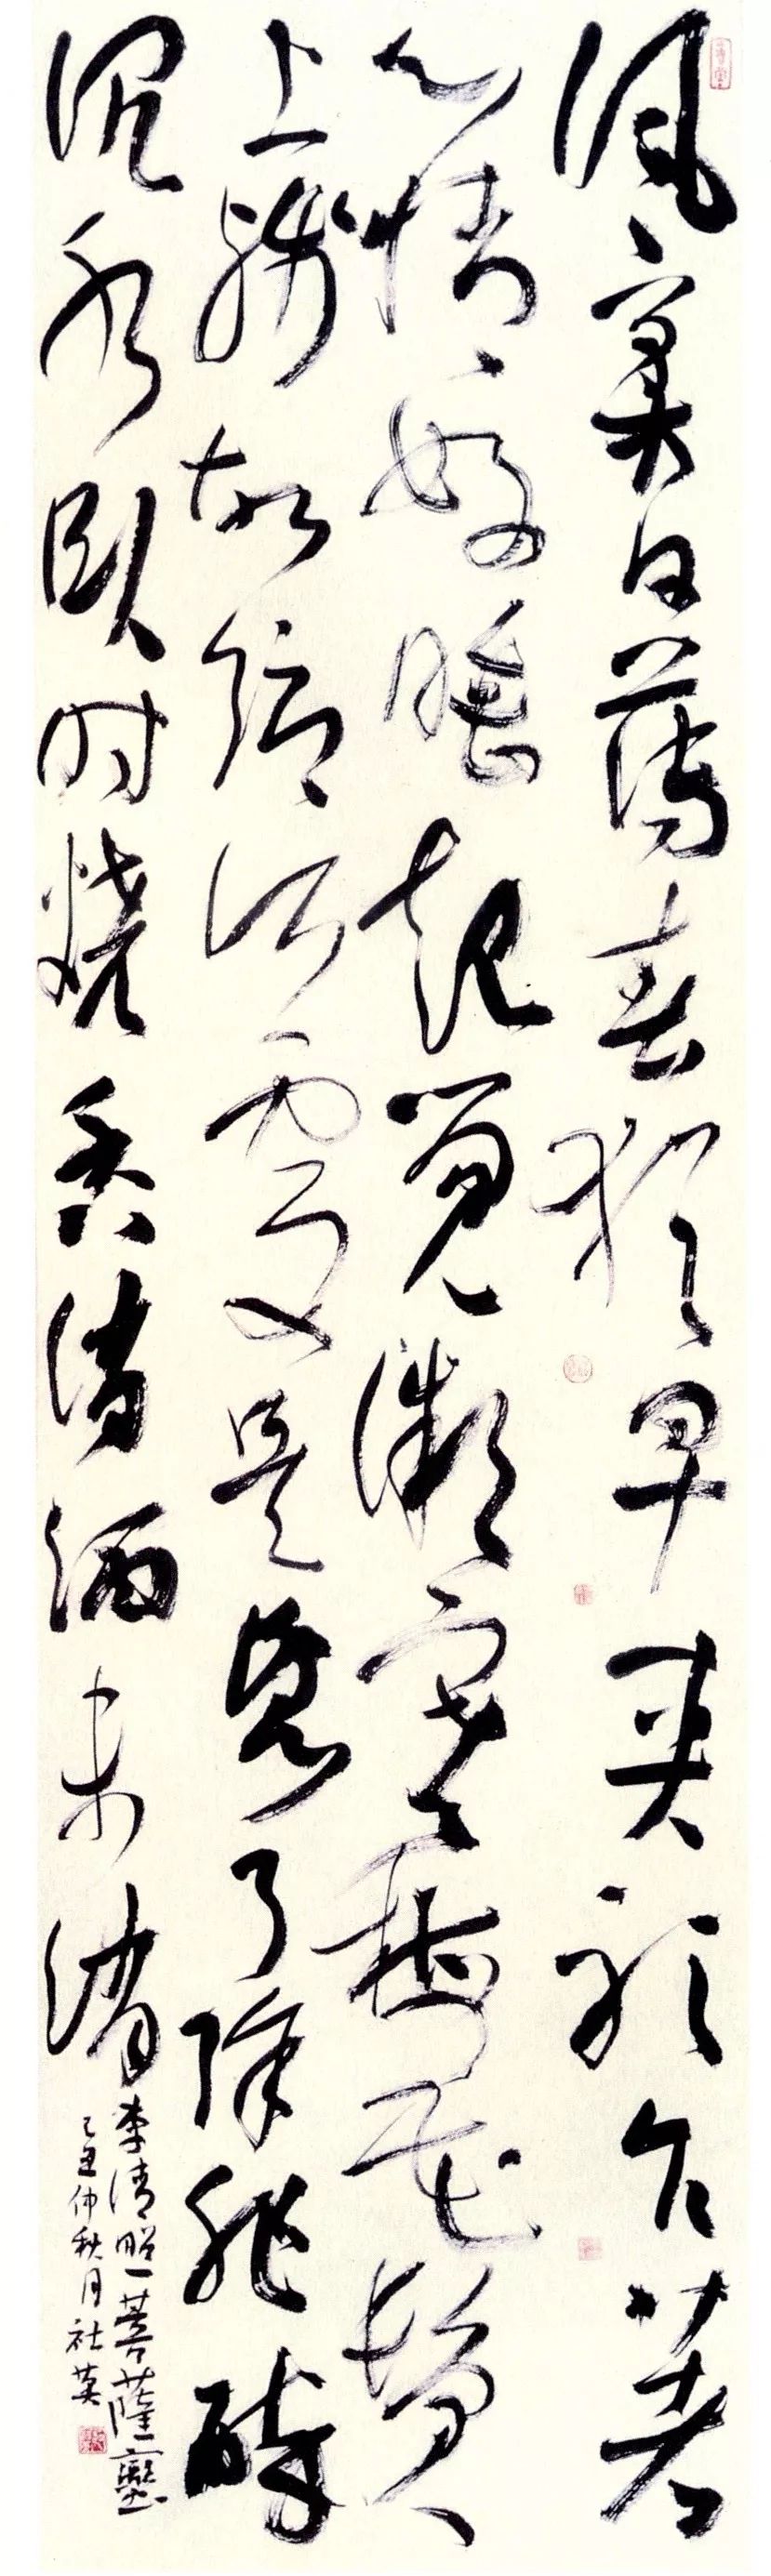 風柔日薄春猶早夾衫乍著
心情好睡起覺微寒梅花鬢
上殘故鄉何處是忘了除非醉
沉水臥时燒香消酒未消
李清照菩薩蠻
丑仲秋月社英